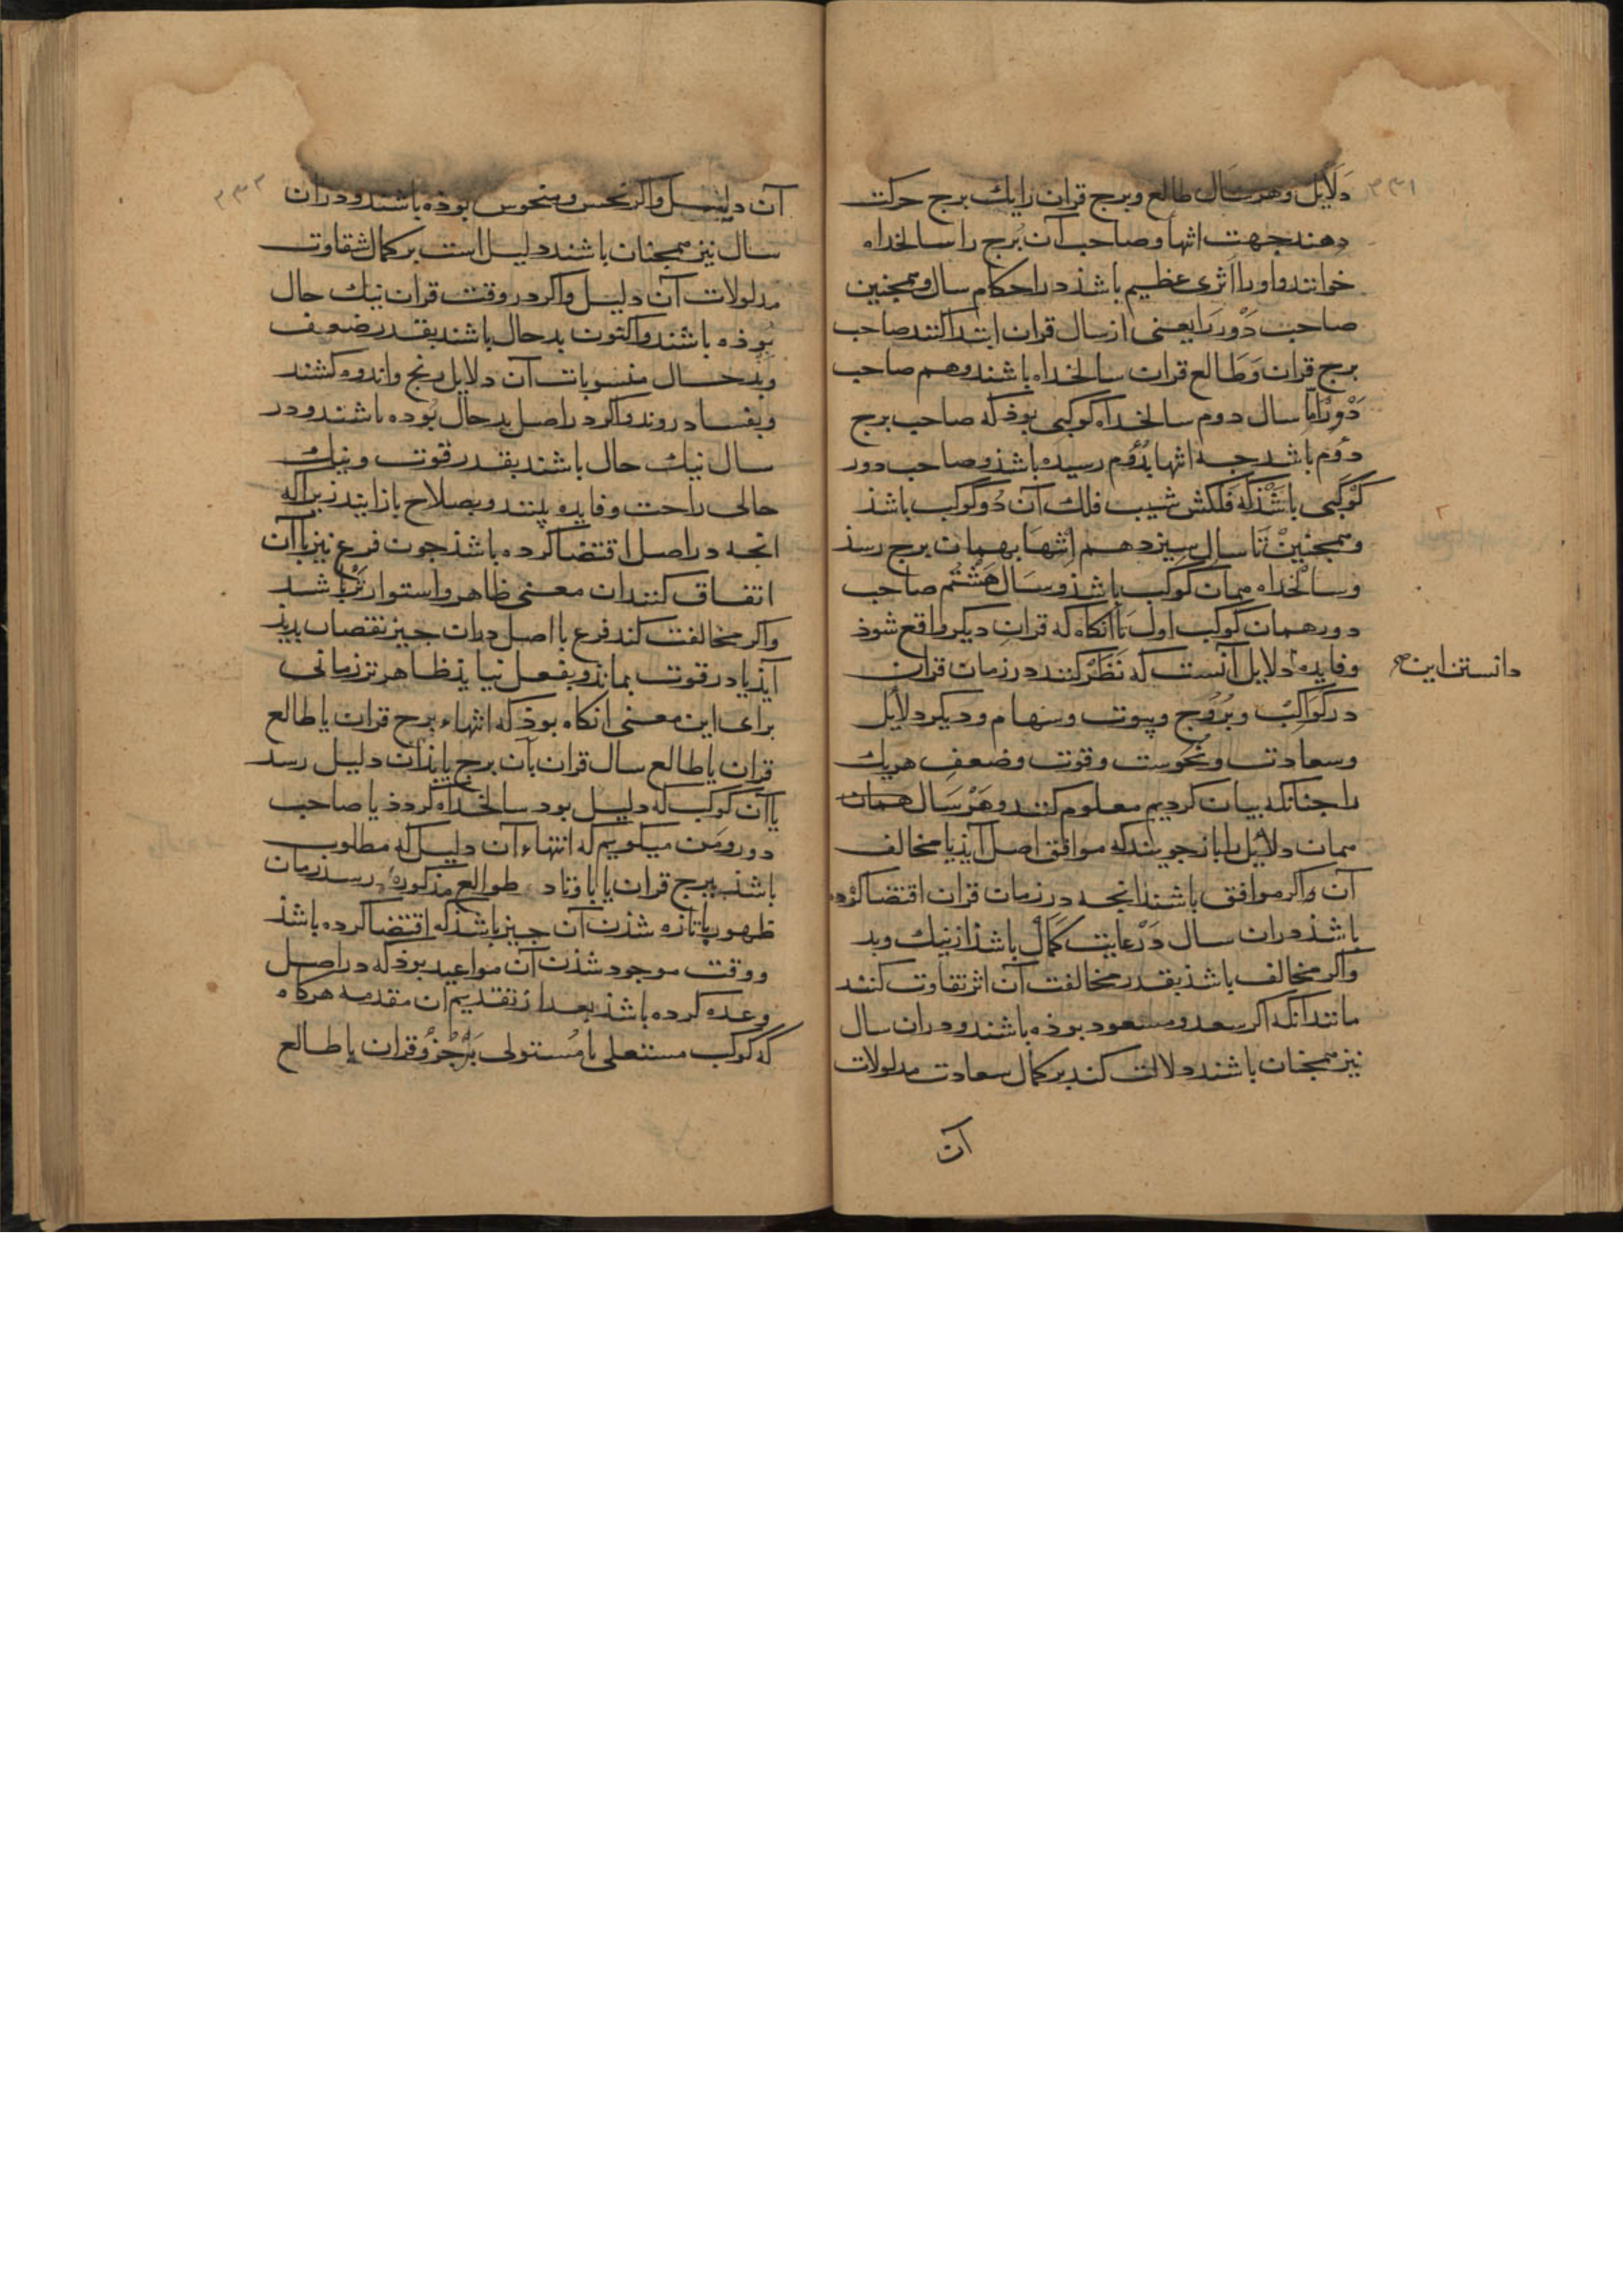 ۳۳۱
دَلایل وهر سَال طالع وبرج قران را یک برج حرکت
دهند جهت انتها وصاحب آن بُرج را سالخداه
خوانند واورا اثری عظیم باشد در احکام سال وهمچنین
صاحب دَوْر رَا یعنی از سال قران ابتدا کنند صاحب
برج قران وَطَالع قران سالخداه باشند وهم صاحب
دَوْر اما سال دوم سالخداه کوکبی بوذ که صاحب برج
دوُم باشد جه انتها بدوُم رسیده باشذ وصاحب دور
کَوْکبی باشَذکه فَلَکش شیب فلک آن دُوکوکب باشذ
وهمجنینْ تَا سال سِیزدهم اِنتهَا بهمان برج رسذ
وسالْخداه همان کوکب باشذ وسَال هَشْتُم صاحب
دور همان کوکب اول تَا آنکاه که قرانِ دیکر واقع شوذ
وفایده دلایل آنست که نَظَرْ کنند در زمان قران
دانستن این صح
در کَوَاکبْ وبُرُوج وبیوت وسهام ودیکر دلایل
وسعادت ونحُوست وقوت وضعفِ هریک
را جنانکه بیان کردیم معلوم کنند وهَرْ سَال همان
همان دلایل را باز جویند که موافق اصل آیذ یا مخالف
آن واکر موافق باشند انجه در زمان قران اقتضا کرده
باشد دران سال دَرْ غایت کمَال باشذ از نیک وبد
واکر مخالف باشذ بقدر مخالفت آن اثر تفاوت کنند
مانند آنکه اکر سعد ومسعود بوذه باشند ودران سال
نیز همجنان باشند دلالت کند بر کمال سعادت مدلولات
آن
۳۳۲
آن دلیل واکر نحس ومنحوس بوذه باشند ودران
سال نیز همجنان باشند دلیل است بر کمال شقاوت
مدلولات آن دلیل واکر در وقت قران نیک حال
بوذه باشند واکنون بدحال باشند بقدر ضعف
وبدحال منسوبات آن دلایل رنج واندوه کشند
وبفساد روند واکر در اصل بدحال بُوده باشند ودر
سال نیک حال باشند بقدر قوت ونیک
حالی راحت وفایده بینند وبصلاح باز ایند زیراکه
انجه در اصل اقتضا کرده باشذ جون فرع نیز با آن
اتفاق کنند ان معنی ظاهر واستوارتر باشد
واکر مخالفت کند فرع با اصل دران جیز نقصان بدیذ
آیذ یا در قوت بماند وبفعل نیایذ ظاهر تر زمانی
برای این معنی انکاه بوذ که انتهاء برج قران یا طالع
قران یا طالع سال قران بآن برج یا بذان دلیل رسد
یا آن کوکب که دلیل بود سالخداه کردذ یا صاحب
دور ومَن میکویم که انتهاء آن دلیل که مطلوب
باشذ ببرج قران یا باوتاد طوالع مذکوره رسد زمان
ظهور یا تازه شذن آن جیز باشذ که اقتضا کرده باشذ
ووقت موجود شذن آن مواعید بوذ که در اصل
وعده کرده باشذ بعد از تقدیم ان مقدمه هرکاه
که کوکب مستعلی یا مُستولی بَرْ جُزْوْ قران یا طالع